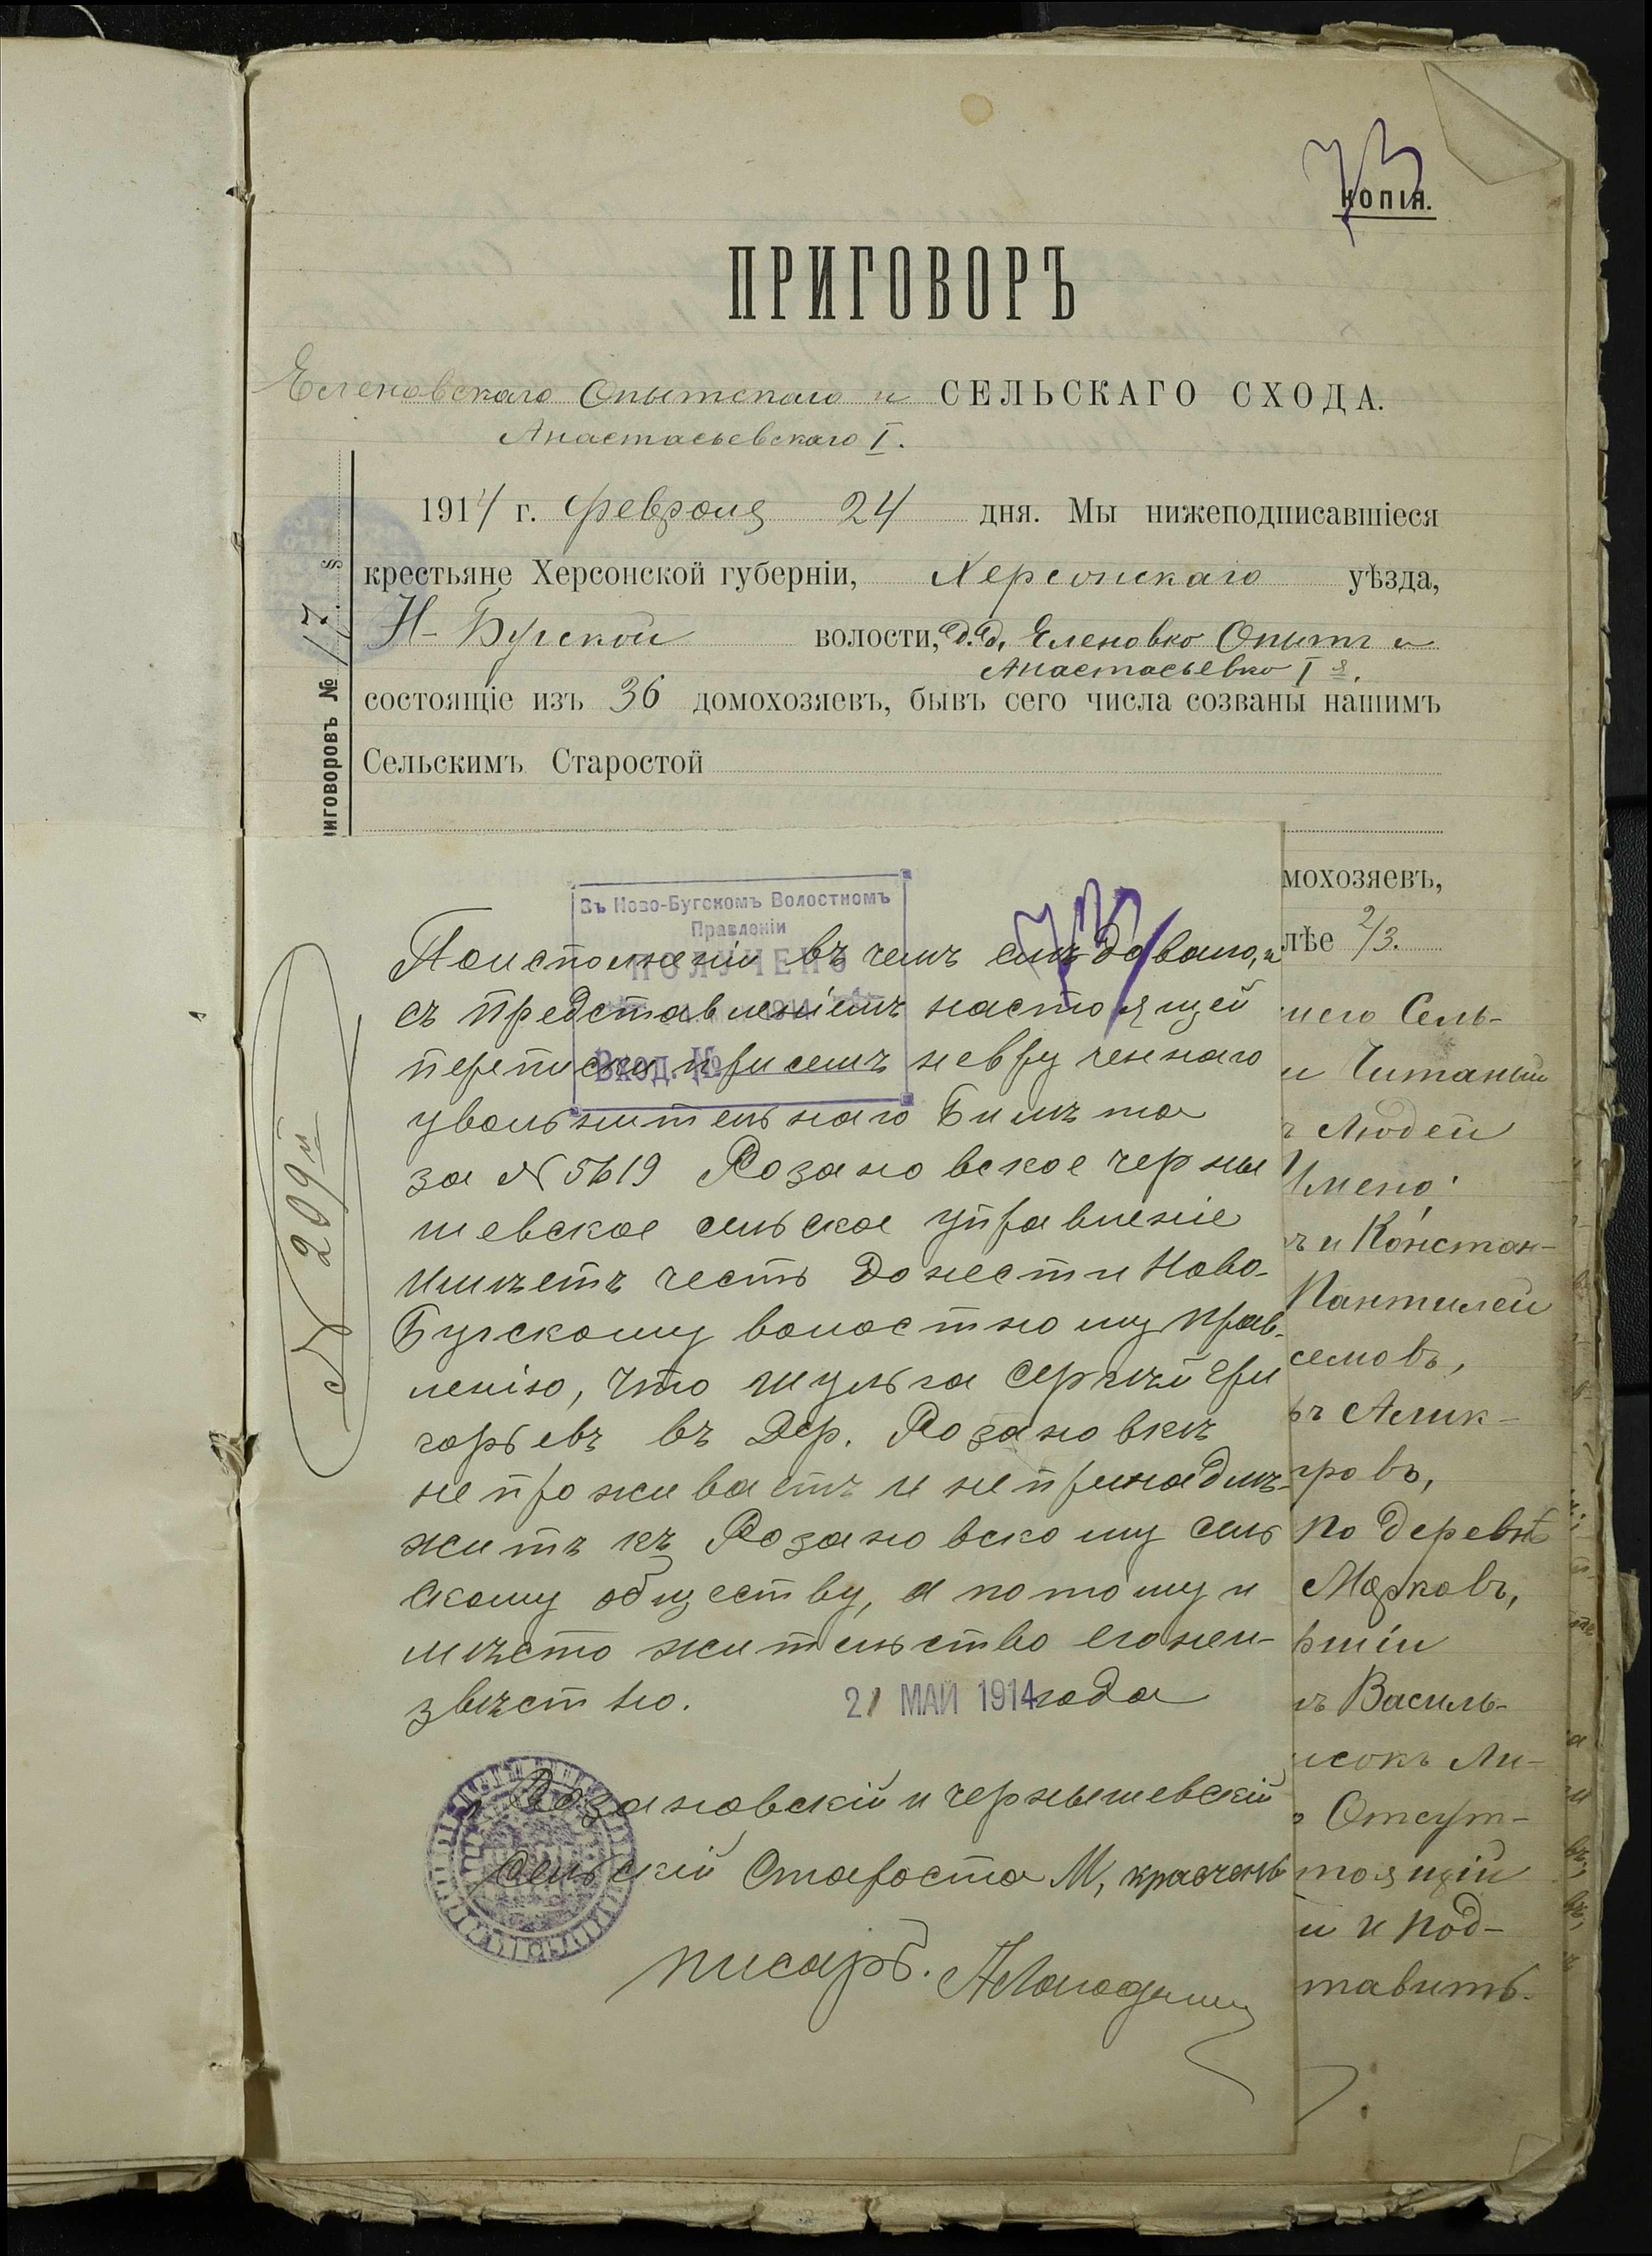 73
КОПІЯ.
ПРИГОВОРЪ
Еленовскаго Опытскаго и СЕЛЬСКАГО СХОДА.
Анастасьевскаго I.
1914 г. февраля 24 дня. Мы нижеподписавшіеся
крестьяне Херсонской губерніи, Херсонскаго уѣзда,
Н-Бугской волости, д.д. Еленовко Опытъ и
Анастасьевко I я.
состоящіе изъ 36 домохозяевъ, бывъ сего числа созваны нашимъ
Сельскимъ Старостой
иговоровъ № 17.
мохозяевъ,
лѣе 2/3.
шего Сель-
и Читаный
ъ Людей
Имено:
ъ и Констан-
Пантилей
семовъ,
ръ Алик-
гровъ,
по деревнѣ
Марковъ,
ршій
ъ Василь-
исокъ Ли-
Отсут-
тоящій
й и под-
тавить.
Въ Ново-Бугскомъ Волостномъ
Правленіи
ПОЛУЧЕНО
1914
Вход. №
73
№ 209й
По исполненіи въ чемъ слѣдовало, и
съ представленіемъ настоящей
переписки при семъ невручennaго
увольнительнаго Билѣта
за № 5619 Розановское черны
шевское сельское управленіе
имѣетъ честь донести Ново-
Бугскому волостному прав-
ленію, что Шульга Сергѣй Гри
горьевъ въ Дер. Розановкѣ
не проживаетъ и не принадлѣ-
житъ къ Розановскому сель
скому обществу, а потому и
мѣсто жительство его неи-
звѣстно. 21 МАЙ 1914 года
Розановскій и чернышевскій
Сельскій Староста М,
писарь.